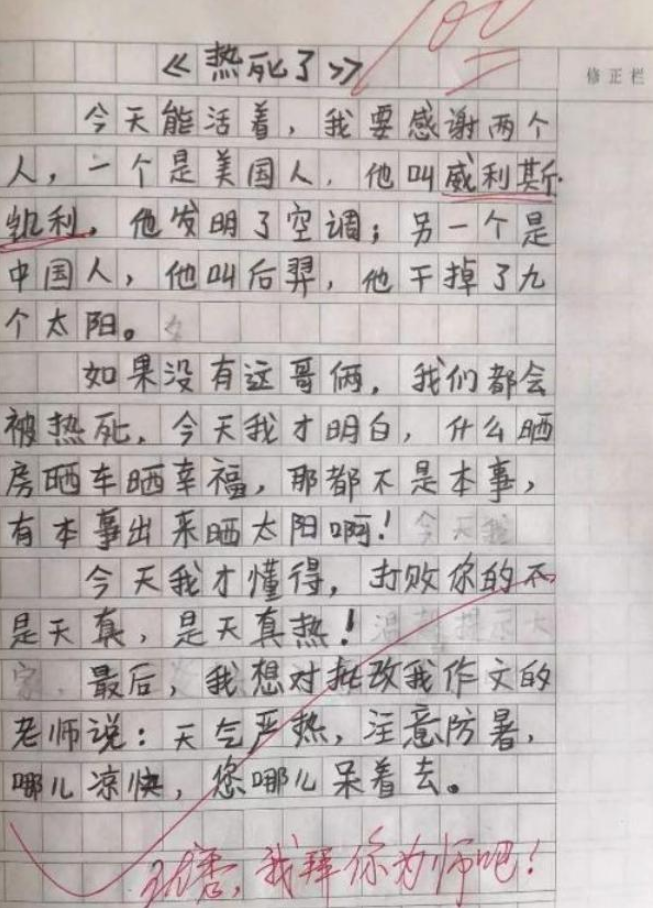 100
修正栏
《热死了》
今天能活着，我要感谢两个
人，一个是美国人，他叫威利斯
凯利，他发明了空调；另一个是
中国人，他叫后羿，他干掉了九
个太阳。
如果没有这哥俩，我们都会
被热死，今天我才明白，什么晒
房晒车晒幸福，那都不是本事，
有本事出来晒太阳啊！今天我
今天我才懂得，打败你的不
是天真，是天真热！温馨提示大
家，最后，我想对批改我作文的
老师说：天气严热，注意防暑，
哪儿凉快，您哪儿呆着去。
优秀，我拜你为师吧！